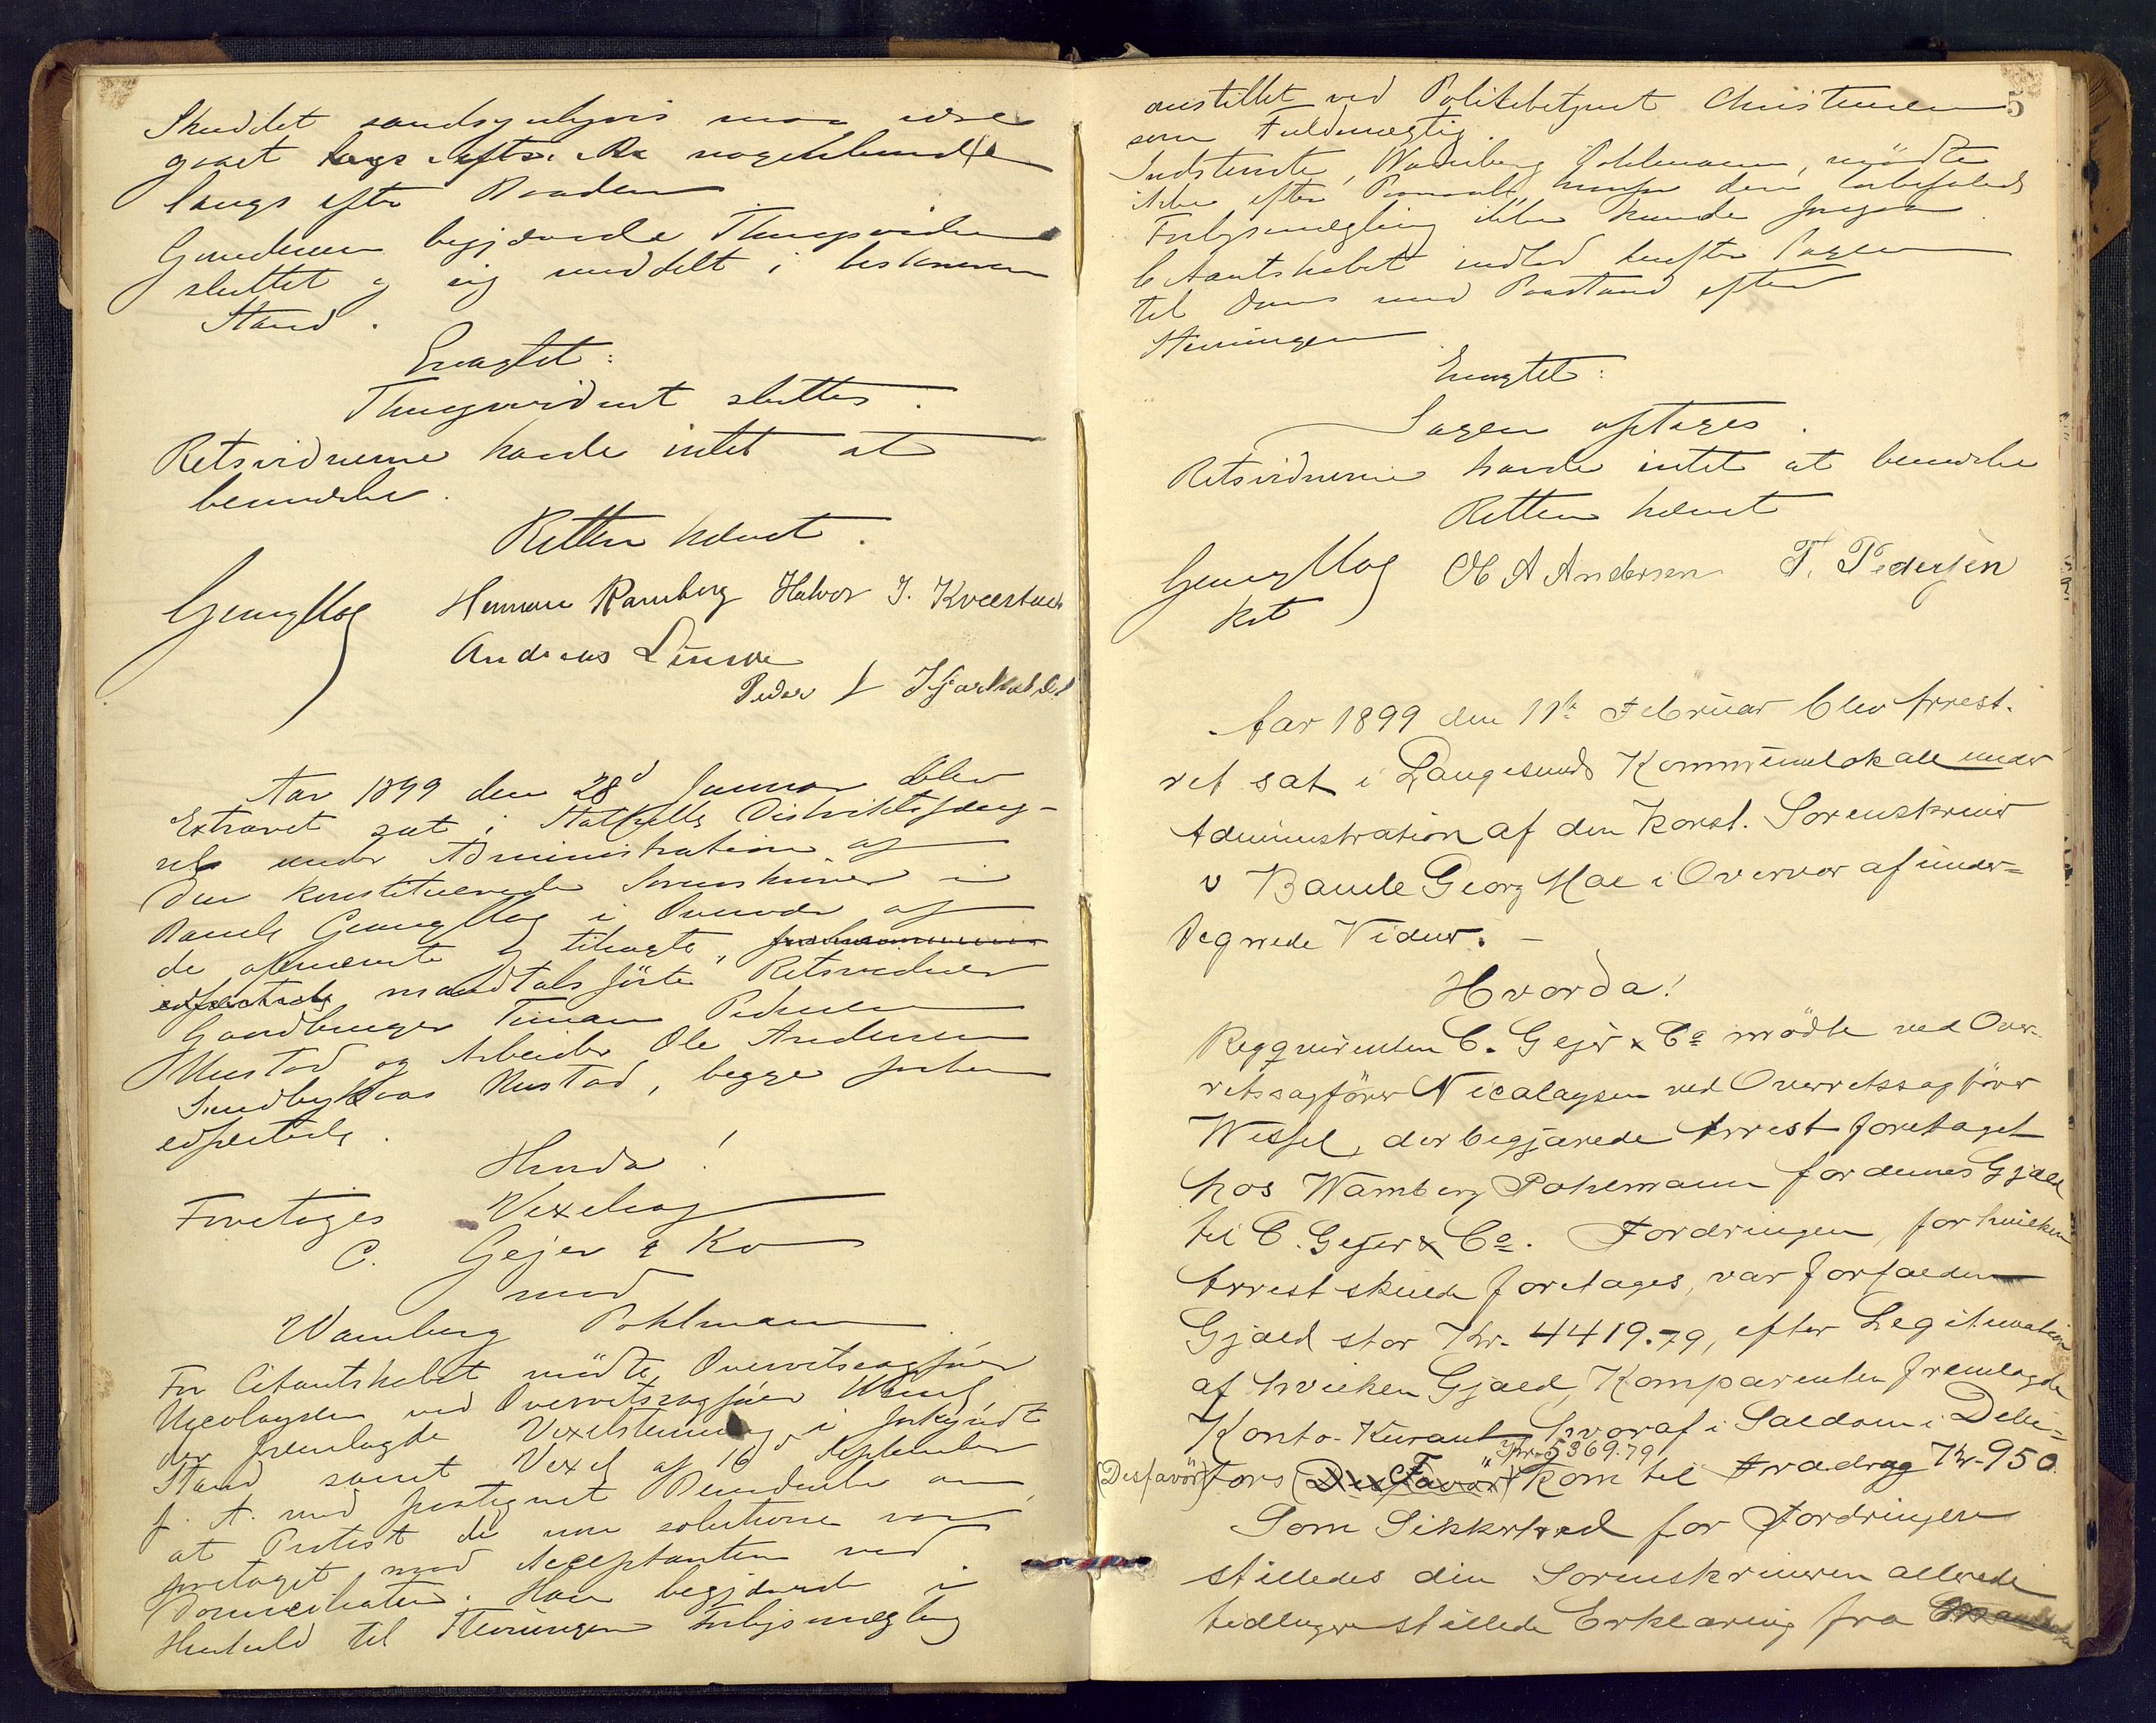 Skuddet sandsynligvis maa være
gaaet langs efter nogenlunde
langs efter Raaden
Grundeieren begjærede Thingsvidnet
sluttet og sig meddelt i beskreven
Stand.
Eragtet:
Thingsvidnet sluttes.
Retsvidnerne havde intet at
bemærke.
Retten hævet.
Georg Mag Herman Ramberg Halvor J.
Andreas
Peder
Aar 1899 den 28d Januar blev
Extraret sat i Stathelle Distriktsfæng-
sel under Administration af
den konstituerede Sorenskriver i
Bamle Georg Mag i Overvær af
de opnævnte og tilsagte,
mandtalsførte Retsvidner
Gaardbruger Timan Pedersen
Mustad og Arbeider Ole Andersen
Mustad, begge forhen
edfæstede.
Hvorda!
Foretoges Vexelsag
C. Gejer & Ko
mod
Wamberg Pohlmann
For Citantskabet mødte Overretssagfører
Nicolaysen ved Overretssagfører Wessel
der fremlagde Vexelstevning i forkyndt
Stand samt Vexel af 16 September
f. A. med paategnet Bevidnelse om
at Protest de non solutione var
foretaget mod Acceptanten ved
Domiciliaten. Han begjærede i
Henhold til Stevningen Forligsmægling
5
anstillet ved Politibetjent Christensen
som Fuldmægtig.
Indstevnte, Wamberg Pohlmann, mødte
ikke efter Paaraab, hvorfor den anbefalede
Forligsmægling ikke kunde foregaa.
Citantskabet indlod derefter Sagen
til Doms med Paastand efter
Stevningen
Eragtet:
Sagen optages.
Retsvidnerne havde intet at bemærke
Retten hævet
Georg Mag O A Andersen T. Pedersen
kst
Aar 1899 den 11te Februar blev Arrest-
ret sat i Langesunds Kommunelokale under
Administration af den Konst. Sorenskriver
i Bamle Georg Mae i Overvær af under-
tegnede Vidner. —
Hvorda!
Reqquirenten C. Gejer & Co mødte ved Over-
retssagfører Nicolaysen ved Overretssagfører
Wessel, der begjærede Arrest foretaget
hos Wamberg Pohlmann for dennes Gjæld
til C. Gejer & Co. Fordringen, for hvilken
Arrest skulde foretages, var forfalden
Gjæld stor Kr. 4419.79, efter Legitimation
af hvilken Gjæld Komparenten fremlagde
Konto-Kurant, hvoraf i Saldo i Debi-
Kr. 5369.79
(Desfavör) tors (Des Favör) kom til Fradrag Kr. 950.
Som Sikkerhed for Fordringen
stilledes den Sorenskriveren allerede
tidligere stillede Erklæring fra